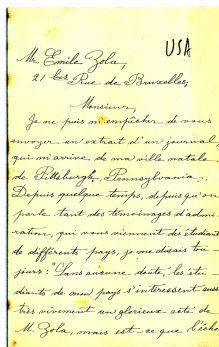 USA
Mr. Emile Zola,
21 bis Rue de Bruxelles,
Monsieur,
Je ne puis m'empêcher de vous
envoyer un extrait d'un journal,
qui m'arrive de ma ville natale
de Pittsburgh, Pennsylvania.
Depuis quelque temps, depuis qu'on
parle tant des témoignages d'admi-
ration, qui vous viennent des étudiants
de différents pays, je me disais tou-
jours: "Sans aucune doute, les étu-
diants de mon pays s'intéressent aussi
très vivement au glorieux acte de
M. Zola, mais est-ce que l'écho